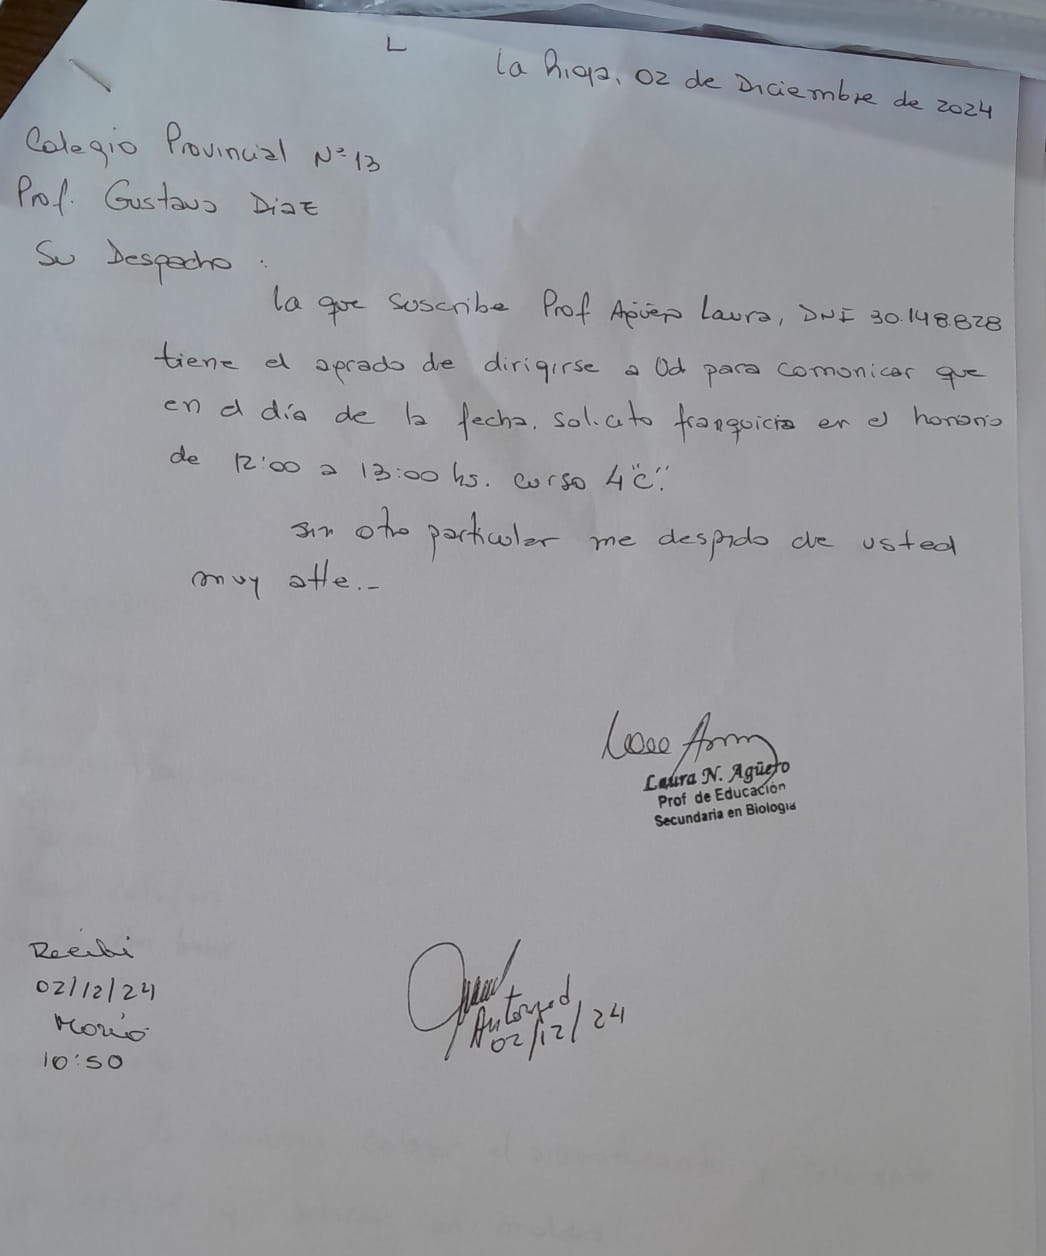 L
La Rioja, 02 de Diciembre de 2024
Colegio Provincial N° 13
Prof. Gustavo Diaz
Su Despacho :
La que suscribe Prof Agüero Laura, DNI 30.148.828
tiene el agrado de dirigirse a Ud para comunicar que
en el día de la fecha, solicito franquicia en el horario
de 12:00 a 13:00 hs. curso 4 "C".
sin otro particular me despido de usted
muy atte.-
Laura N. Agüero
Prof de Educación
Secundaria en Biología
Recibi
02/12/24
10:50
02/12/24